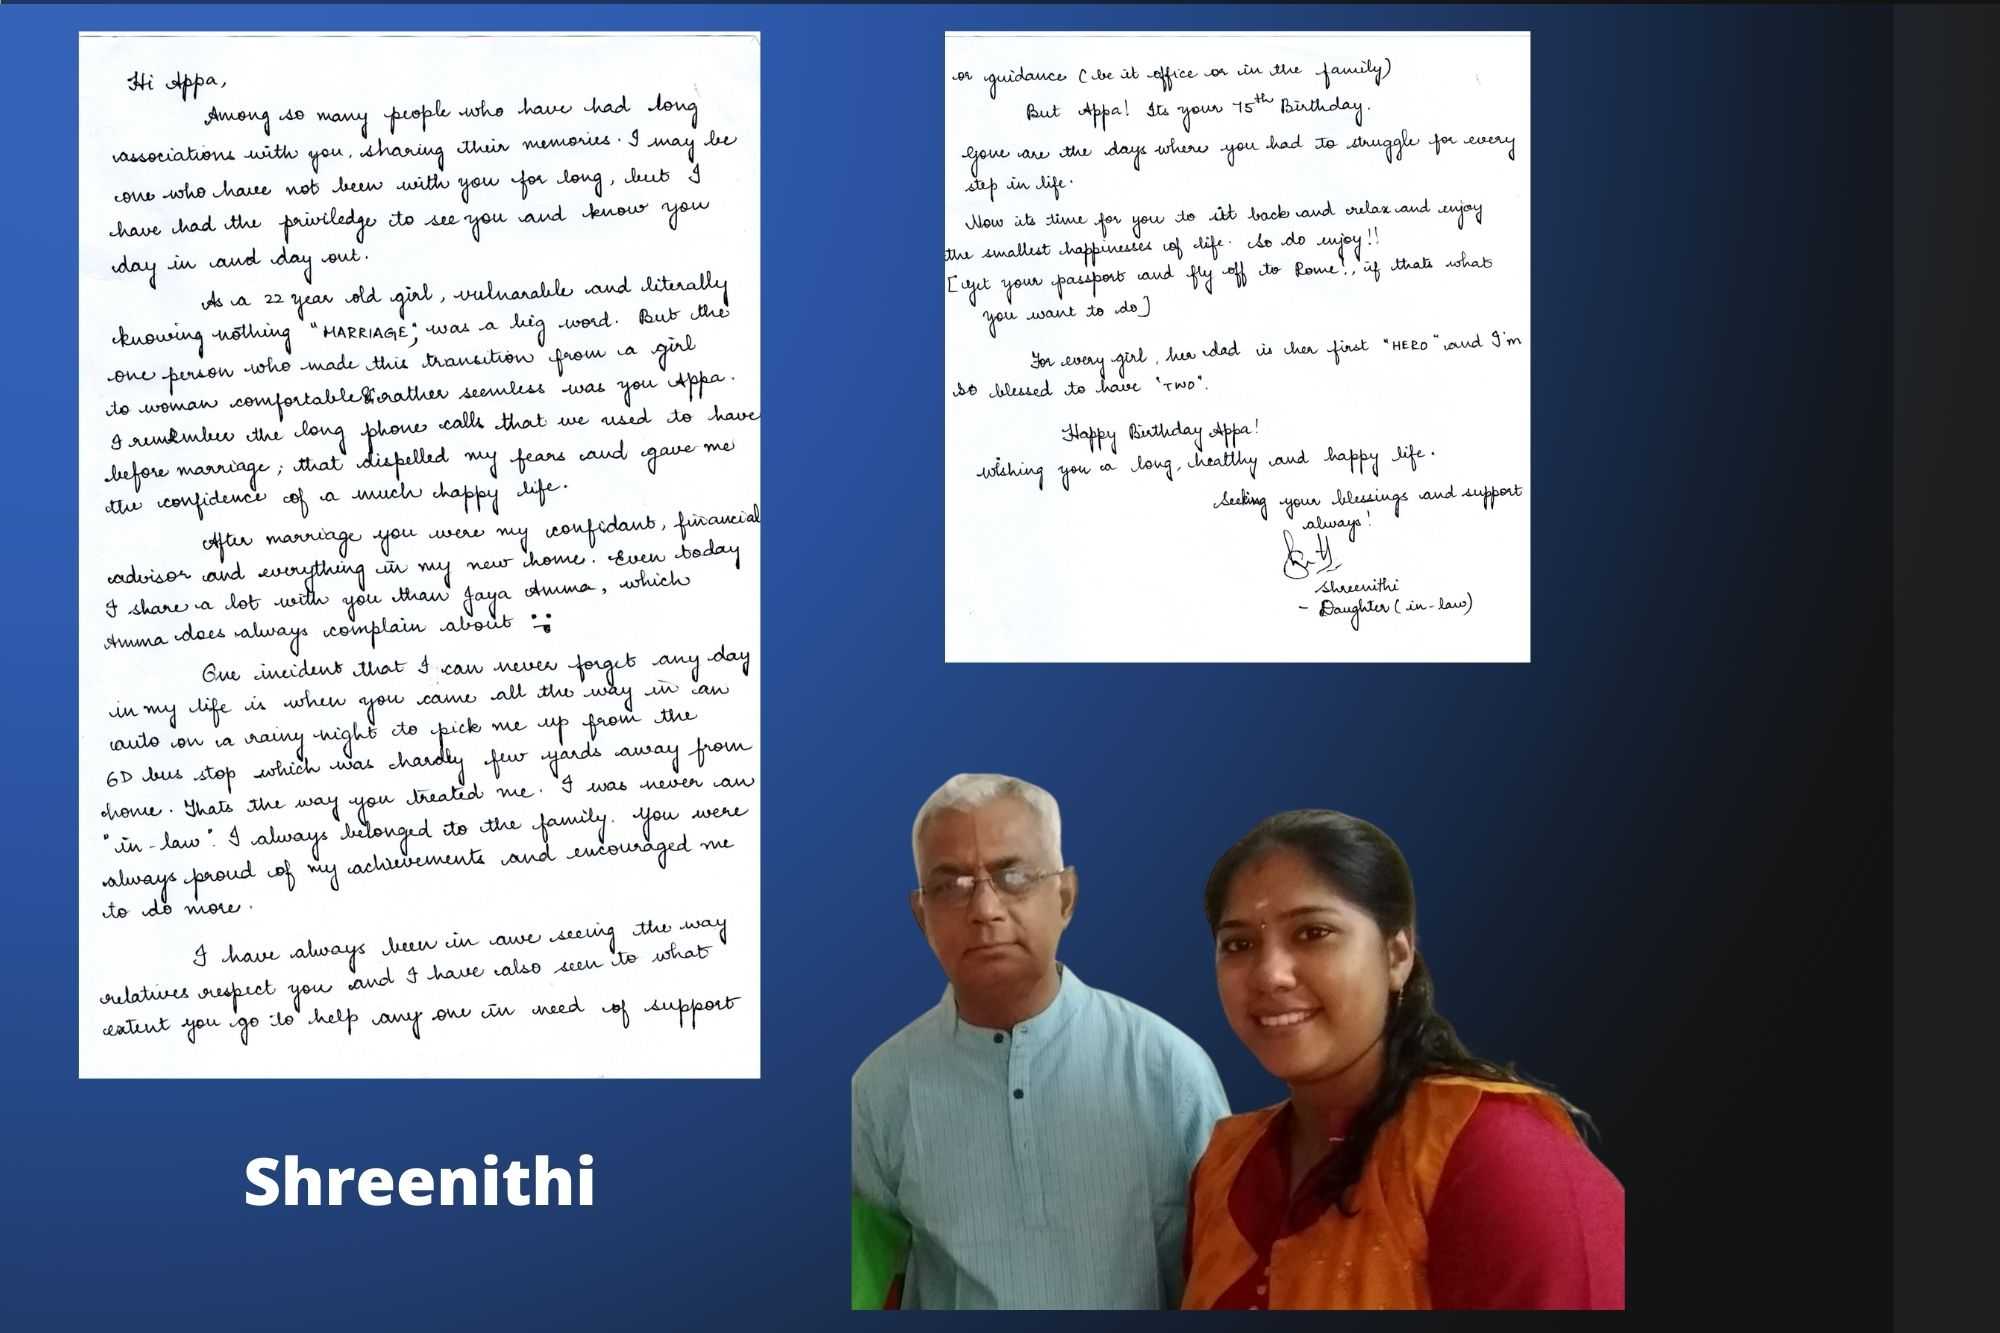 Hi Appa,
Among so many people who have had long
associations with you, sharing their memories. I may be
one who have not been with you for long, but I
have had the priviledge to see you and know you
day in and day out.
As a 22 year old girl, vulnarable and literally
knowing nothing "MARRIAGE", was a big word. But the
one person who made this transition from a girl
to woman comfortable & rather seemless was you Appa.
I remember the long phone calls that we used to have
before marriage, that dispelled my fears and gave me
the confidence of a much happy life.
After marriage you were my confidant, financial
advisor and everything in my new home. Even today
I share a lot with you than Jaya Amma, which
Amma does always complain about
One incident that I can never forget any day
in my life is when you came all the way in an
auto on a rainy night to pick me up from the
6D bus stop which was hardly few yards away from
home. Thats the way you treated me. I was never an
"in-law". I always belonged to the family. You were
always proud of my achievements and encouraged me
to do more.
I have always been in awe seeing the way
relatives respect you and I have also seen to what
extent you go to help any one in need of support
or guidance (be it office or in the family)
But Appa! Its your 75th Birthday.
Gone are the days where you had to struggle for every
step in life.
Now its time for you to sit back and relax and enjoy
the smallest happinesses of life. So do enjoy!!
[Get your passport and fly off to Rome!, if thats what
you want to do]
For every girl, her dad is her first "HERO" and I'm
so blessed to have "TWO".
Happy Birthday Appa!
wishing you a long, healthy and happy life.
Seeking your blessings and support
always!
Shreenithi
- Daughter (in-law)
Shreenithi